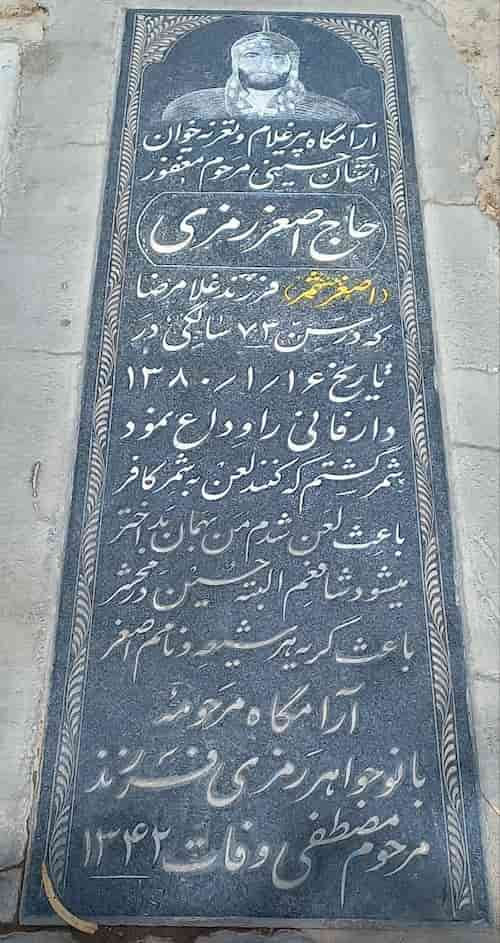 آرامگاه پیرغلام و تعزیه خوان
آستان حسینی مرحوم مغفور
حاج اصغر رمزی
(اصغر شمر) فرزند غلامرضا
که در سن ۷۳ سالگی در
تاریخ ۱۳۸۰/۱/۱۶
دار فانی را وداع نمود
شمر گشتم که کنند لعن به شمر کافر
باعث لعن شدم من بهمان بد اختر
میشود شافعم البته حسین در محشر
باعث گریه هر شیعه و نامم اصغر
آرامگاه مرحومه
بانو جواهر رمزی فرزند
مرحوم مصطفی وفات ۱۳۴۲